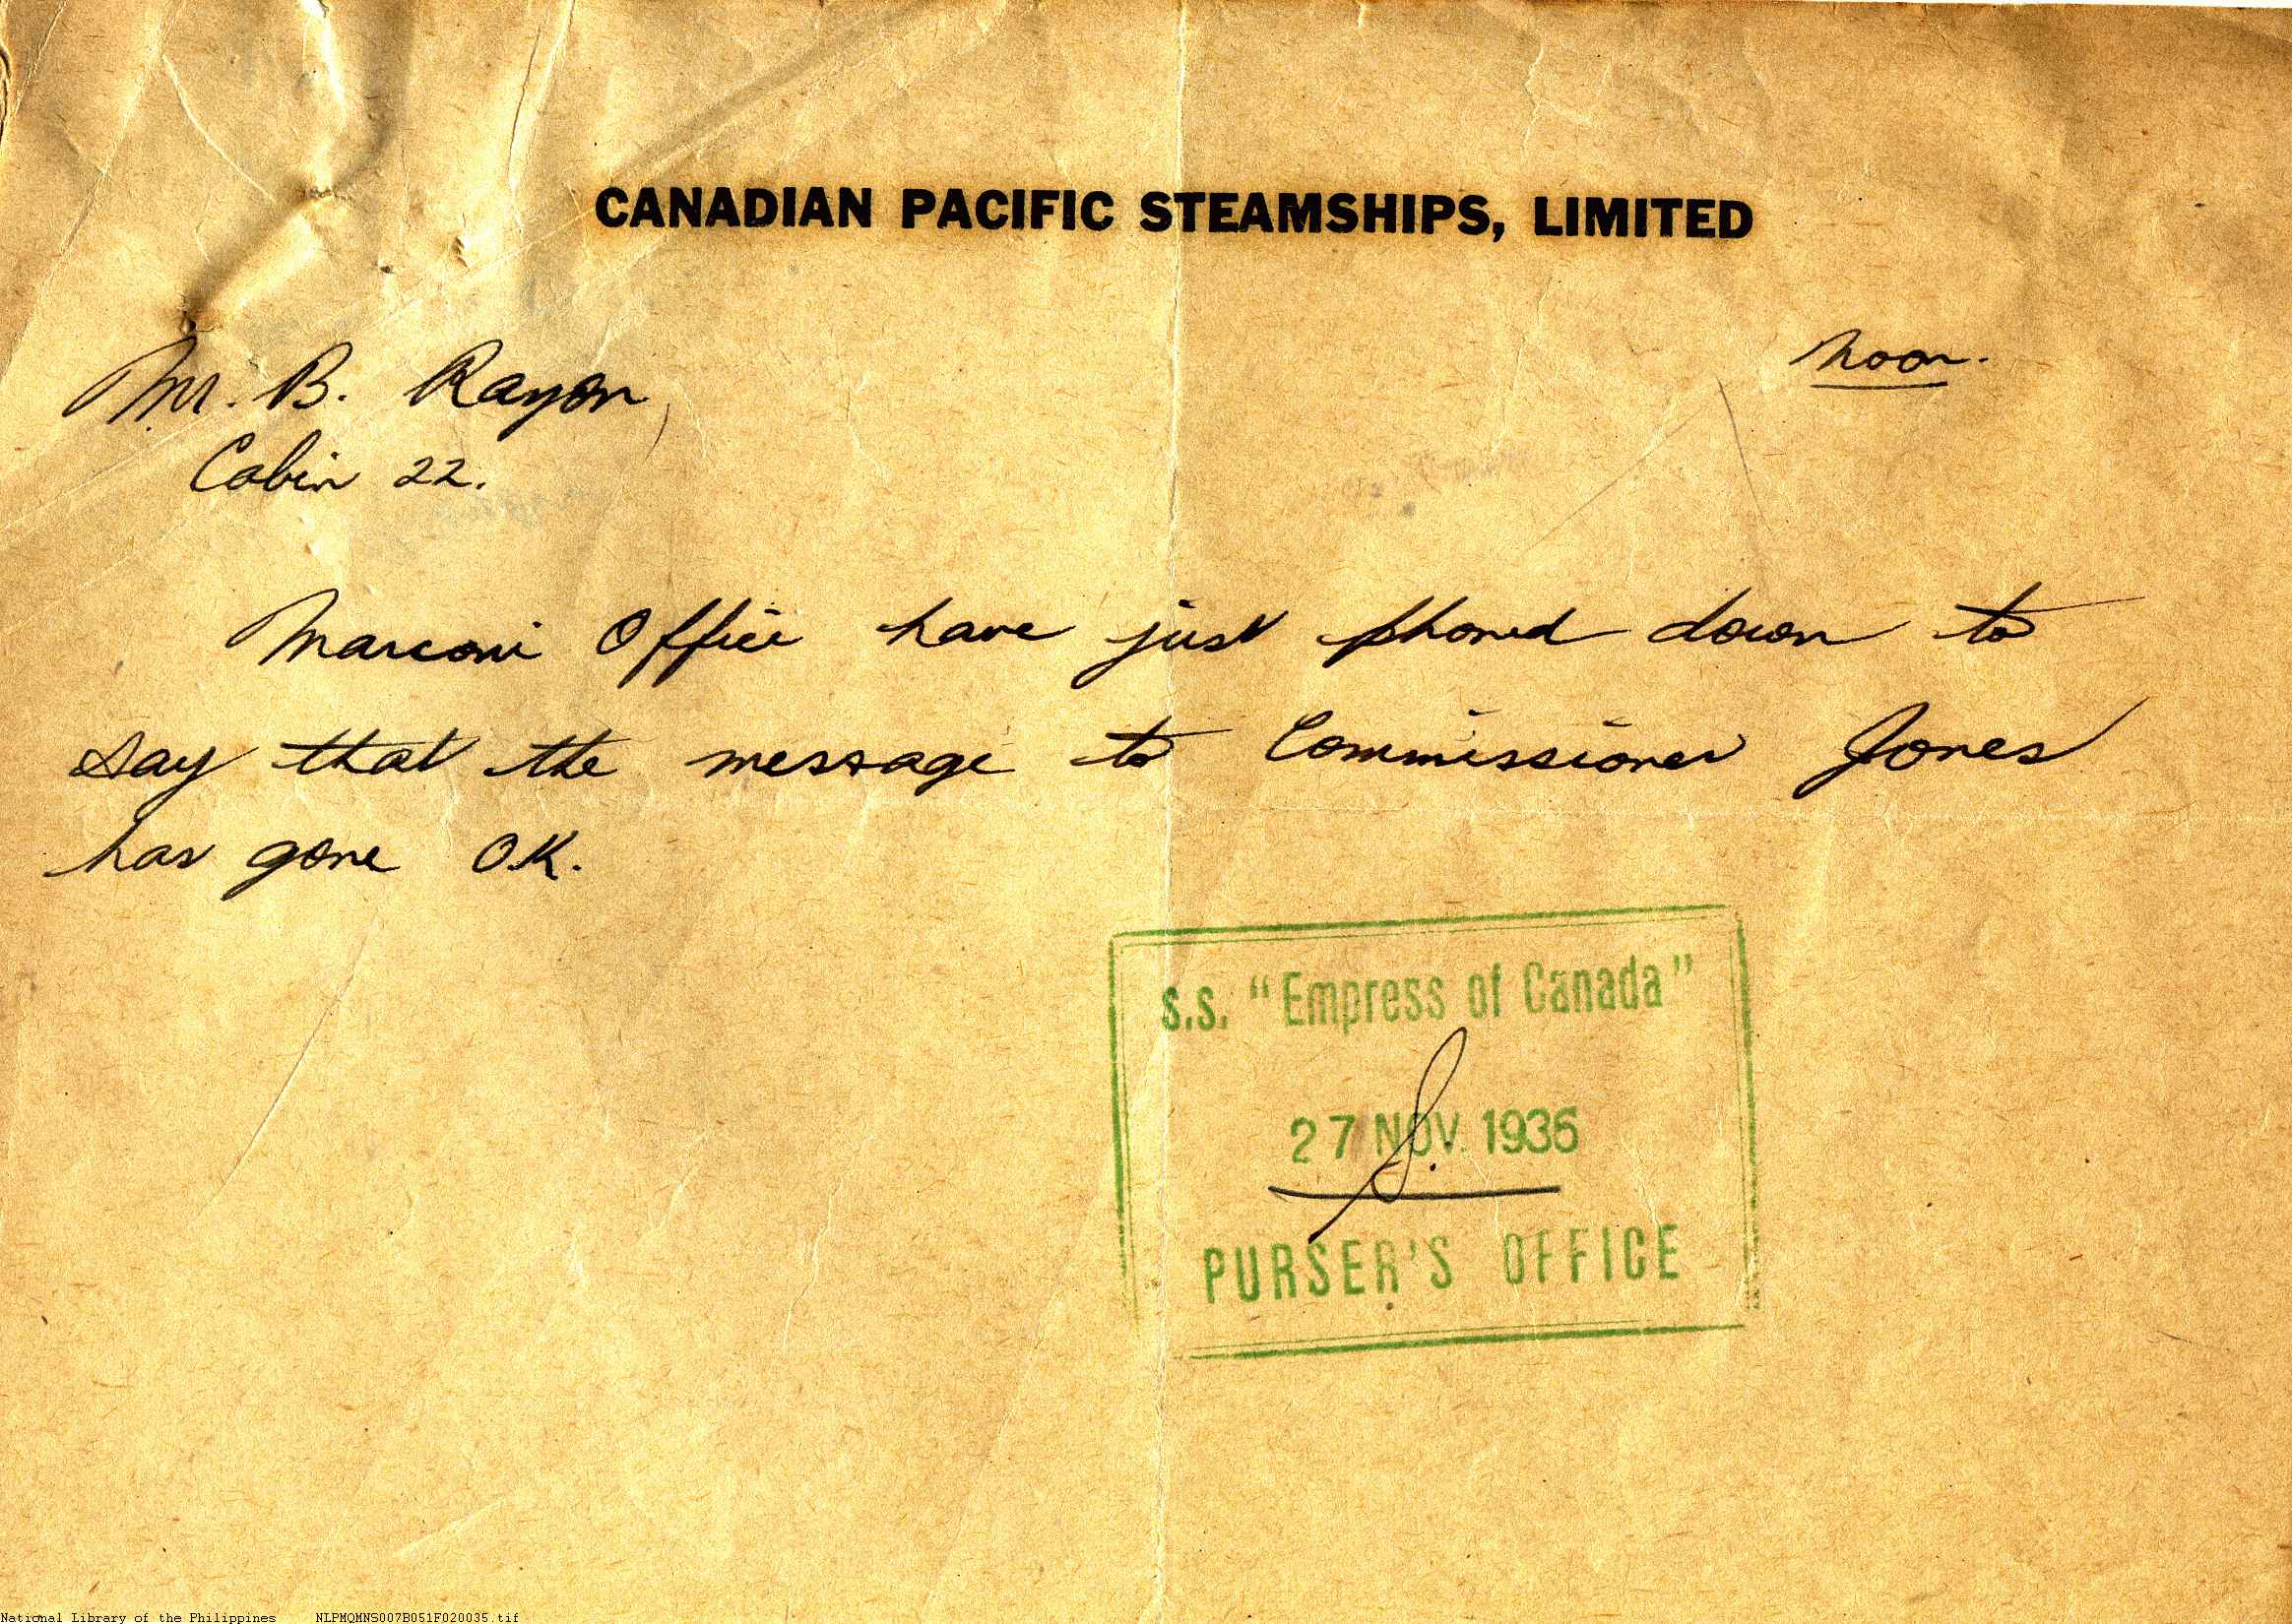 CANADIAN PACIFIC STEAMSHIPS, LIMITED
Noon.
Mr. B. Rayon,
Cabin 22.
Marconi Office have just phoned down to
say that the message to Commissioner Jones
has gone OK.
s.s. "Empress of Canada"
27 NOV. 1936
S.
PURSER'S OFFICE
National Library of the Philippines NLPMQMNS007B051F020035.tif